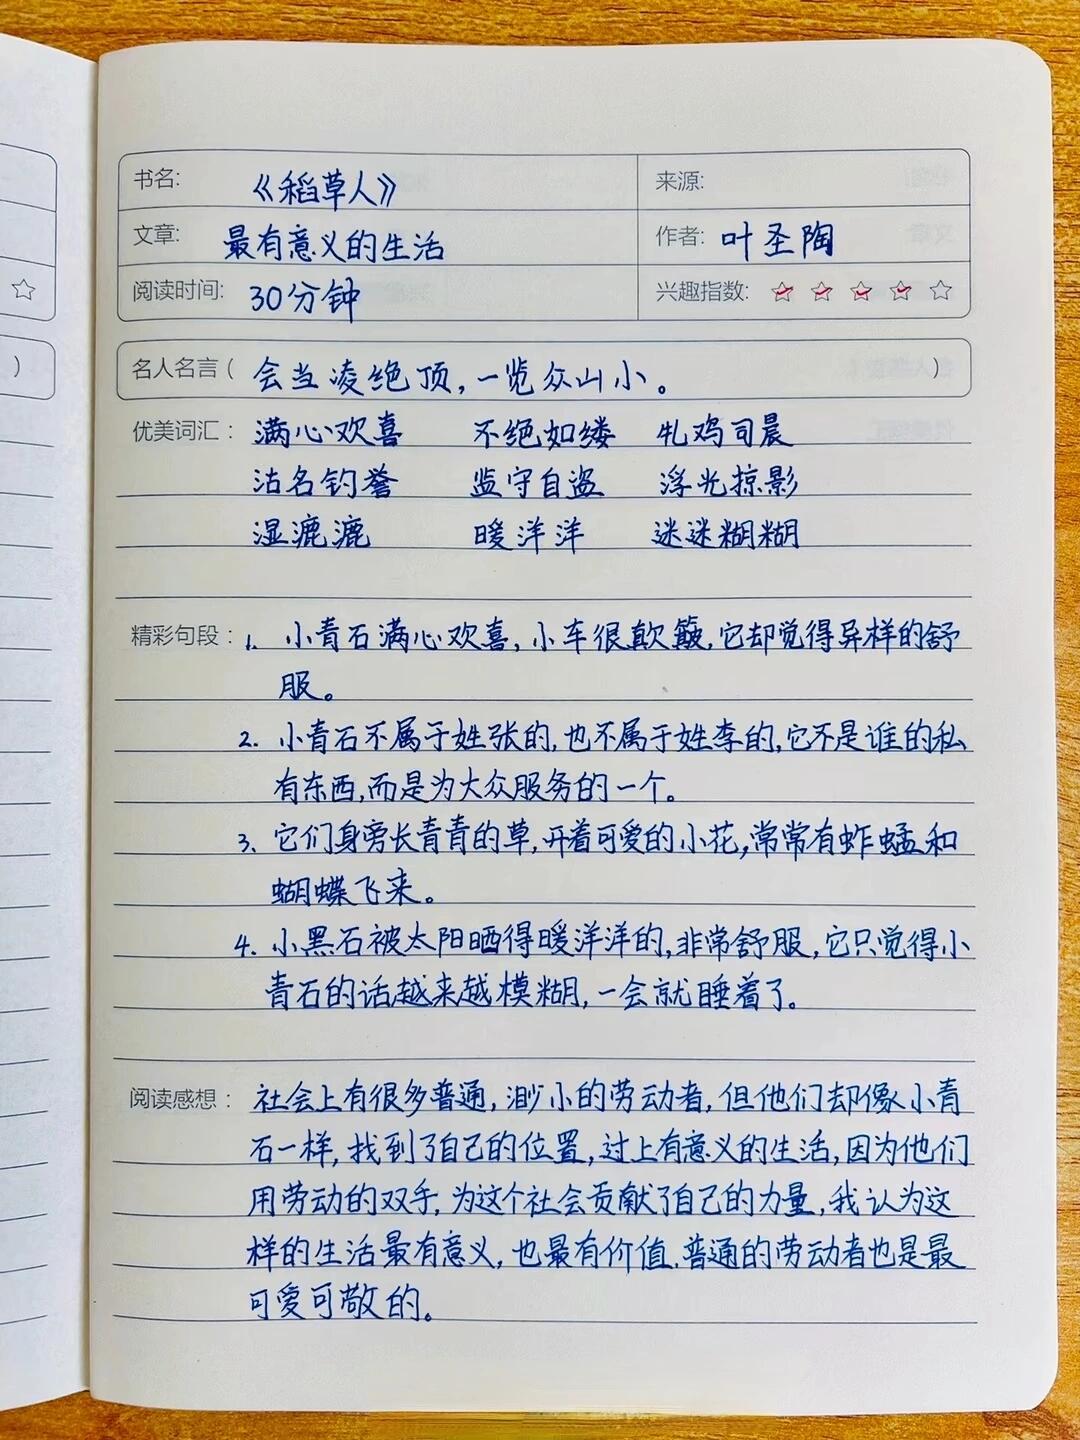 书名: 《稻草人》 来源:
文章: 最有意义的生活 作者: 叶圣陶
阅读时间: 30分钟 兴趣指数: ☆ ☆ ☆ ☆ ☆
名人名言( 会当凌绝顶,一览众山小。 )
)
优美词汇: 满心欢喜 不绝如缕 牝鸡司晨
沽名钓誉 监守自盗 浮光掠影
湿漉漉 暖洋洋 迷迷糊糊
精彩句段: 1. 小青石满心欢喜,小车很颠簸,它却觉得异样的舒
服。
2. 小青石不属于姓张的,也不属于姓李的,它不是谁的私
有东西,而是为大众服务的一个。
3. 它们身旁长青青的草,开着可爱的小花,常常有蚱蜢和
蝴蝶飞来。
4. 小黑石被太阳晒得暖洋洋的,非常舒服,它只觉得小
青石的话越来越模糊,一会就睡着了。
阅读感想: 社会上有很多普通,渺小的劳动者,但他们却像小青
石一样,找到了自己的位置,过上有意义的生活,因为他们
用劳动的双手,为这个社会贡献了自己的力量,我认为这
样的生活最有意义,也最有价值.普通的劳动者也是最
可爱可敬的。